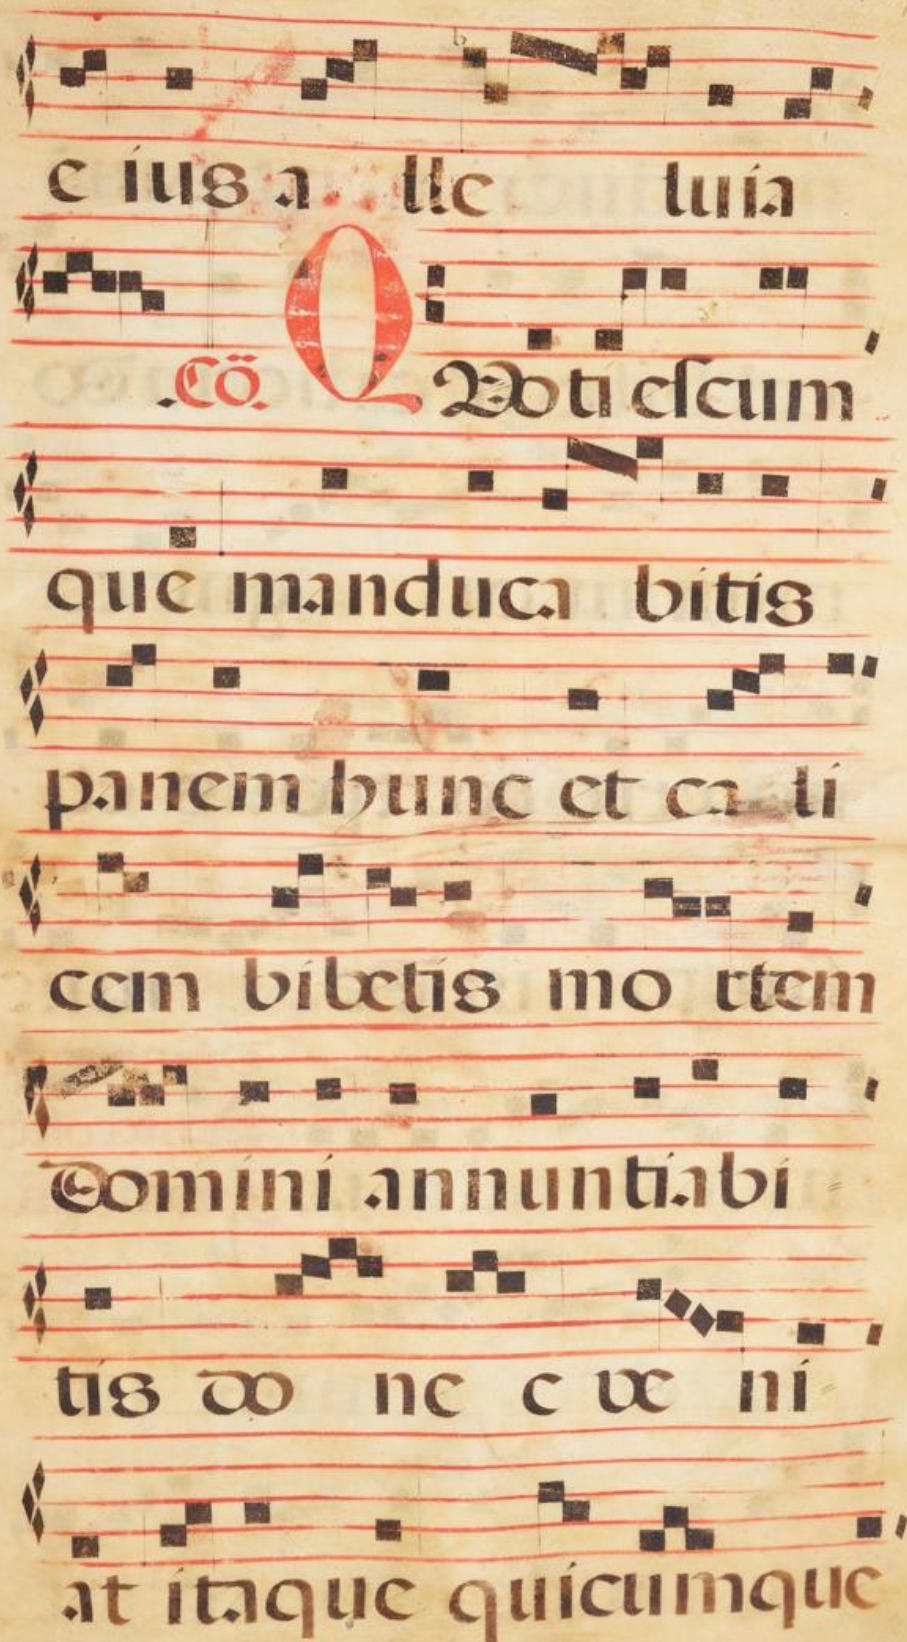 e ius a lle luia
.Cō. QVoti escum
que manduca bitis
panem hunc et ca li
cem bibetis mo rtem
domini annuntiabi
tis do ne c ve ni
at itaque quicumque